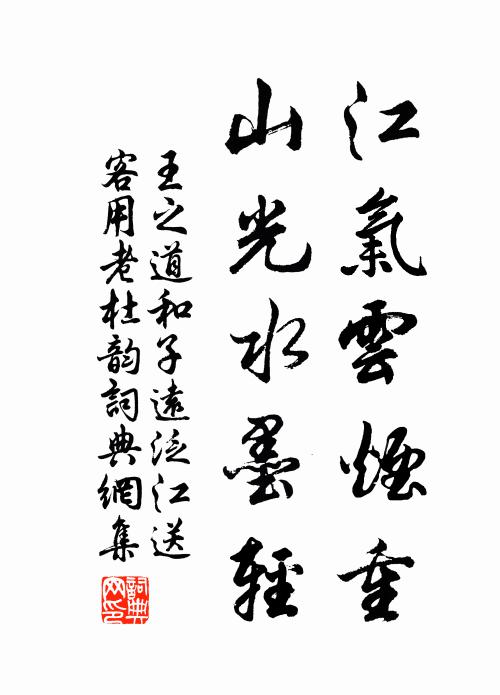 江氣雲煙重
山光水墨輕
王之道和子遠泛江送
客用老杜韵詞典網集
詞典
网印